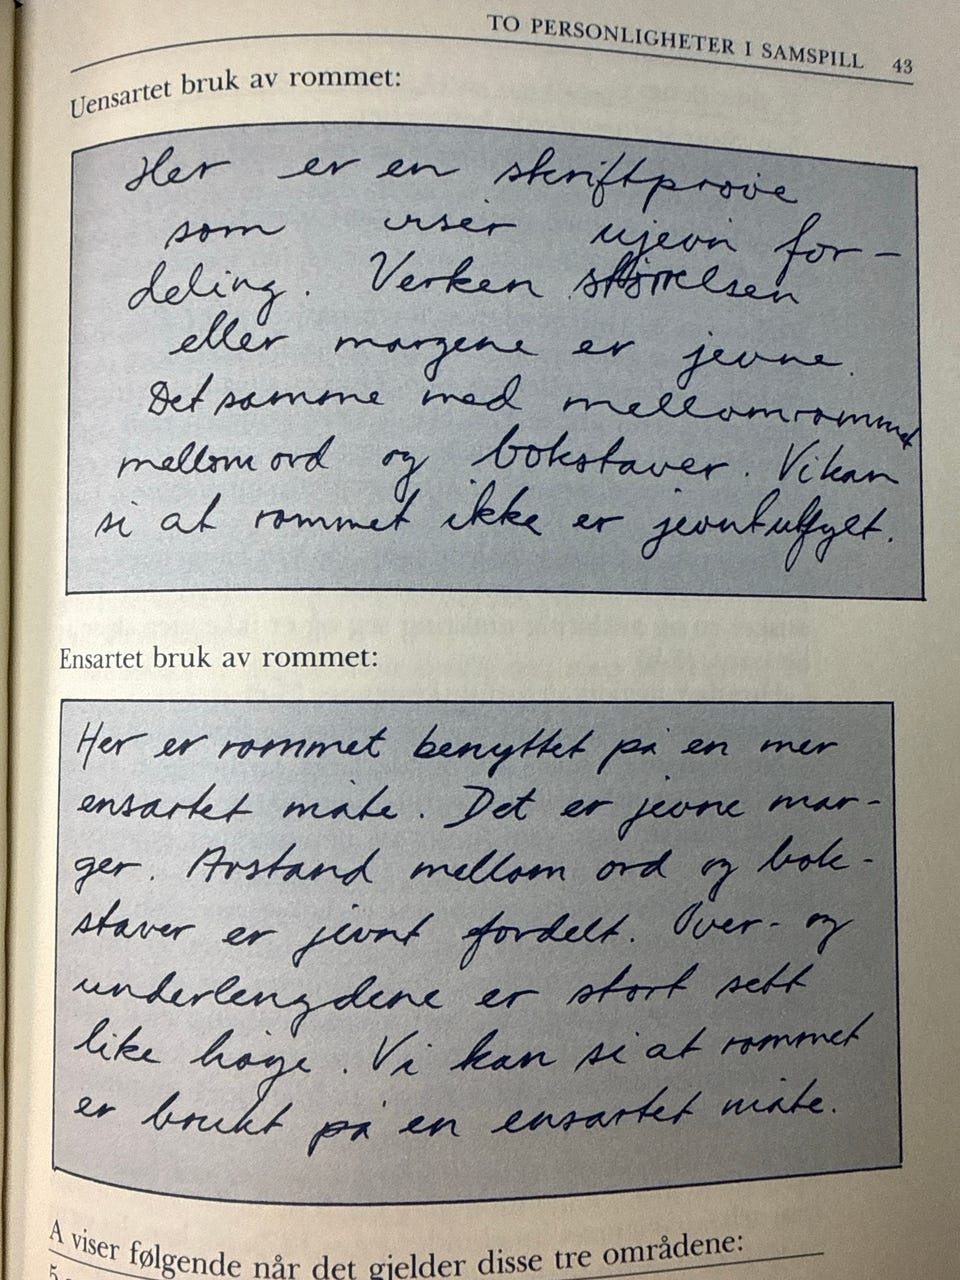 TO PERSONLIGHETER I SAMSPILL 43
Uensartet bruk av rommet:
Her er en skriftprøve
som viser ujevn for-
deling. Verken størrelsen
eller margene er jevne.
Det samme med mellomrommet
mellom ord og bokstaver. Vi kan
si at rommet ikke er jevnt utfylt.
Ensartet bruk av rommet:
Her er rommet benyttet på en mer
ensartet måte. Det er jevne mar-
ger. Avstand mellom ord og bok-
staver er jevnt fordelt. Over- og
underlengdene er stort sett
like høye. Vi kan si at rommet
er brukt på en ensartet måte.
A viser følgende når det gjelder disse tre områdene:
5